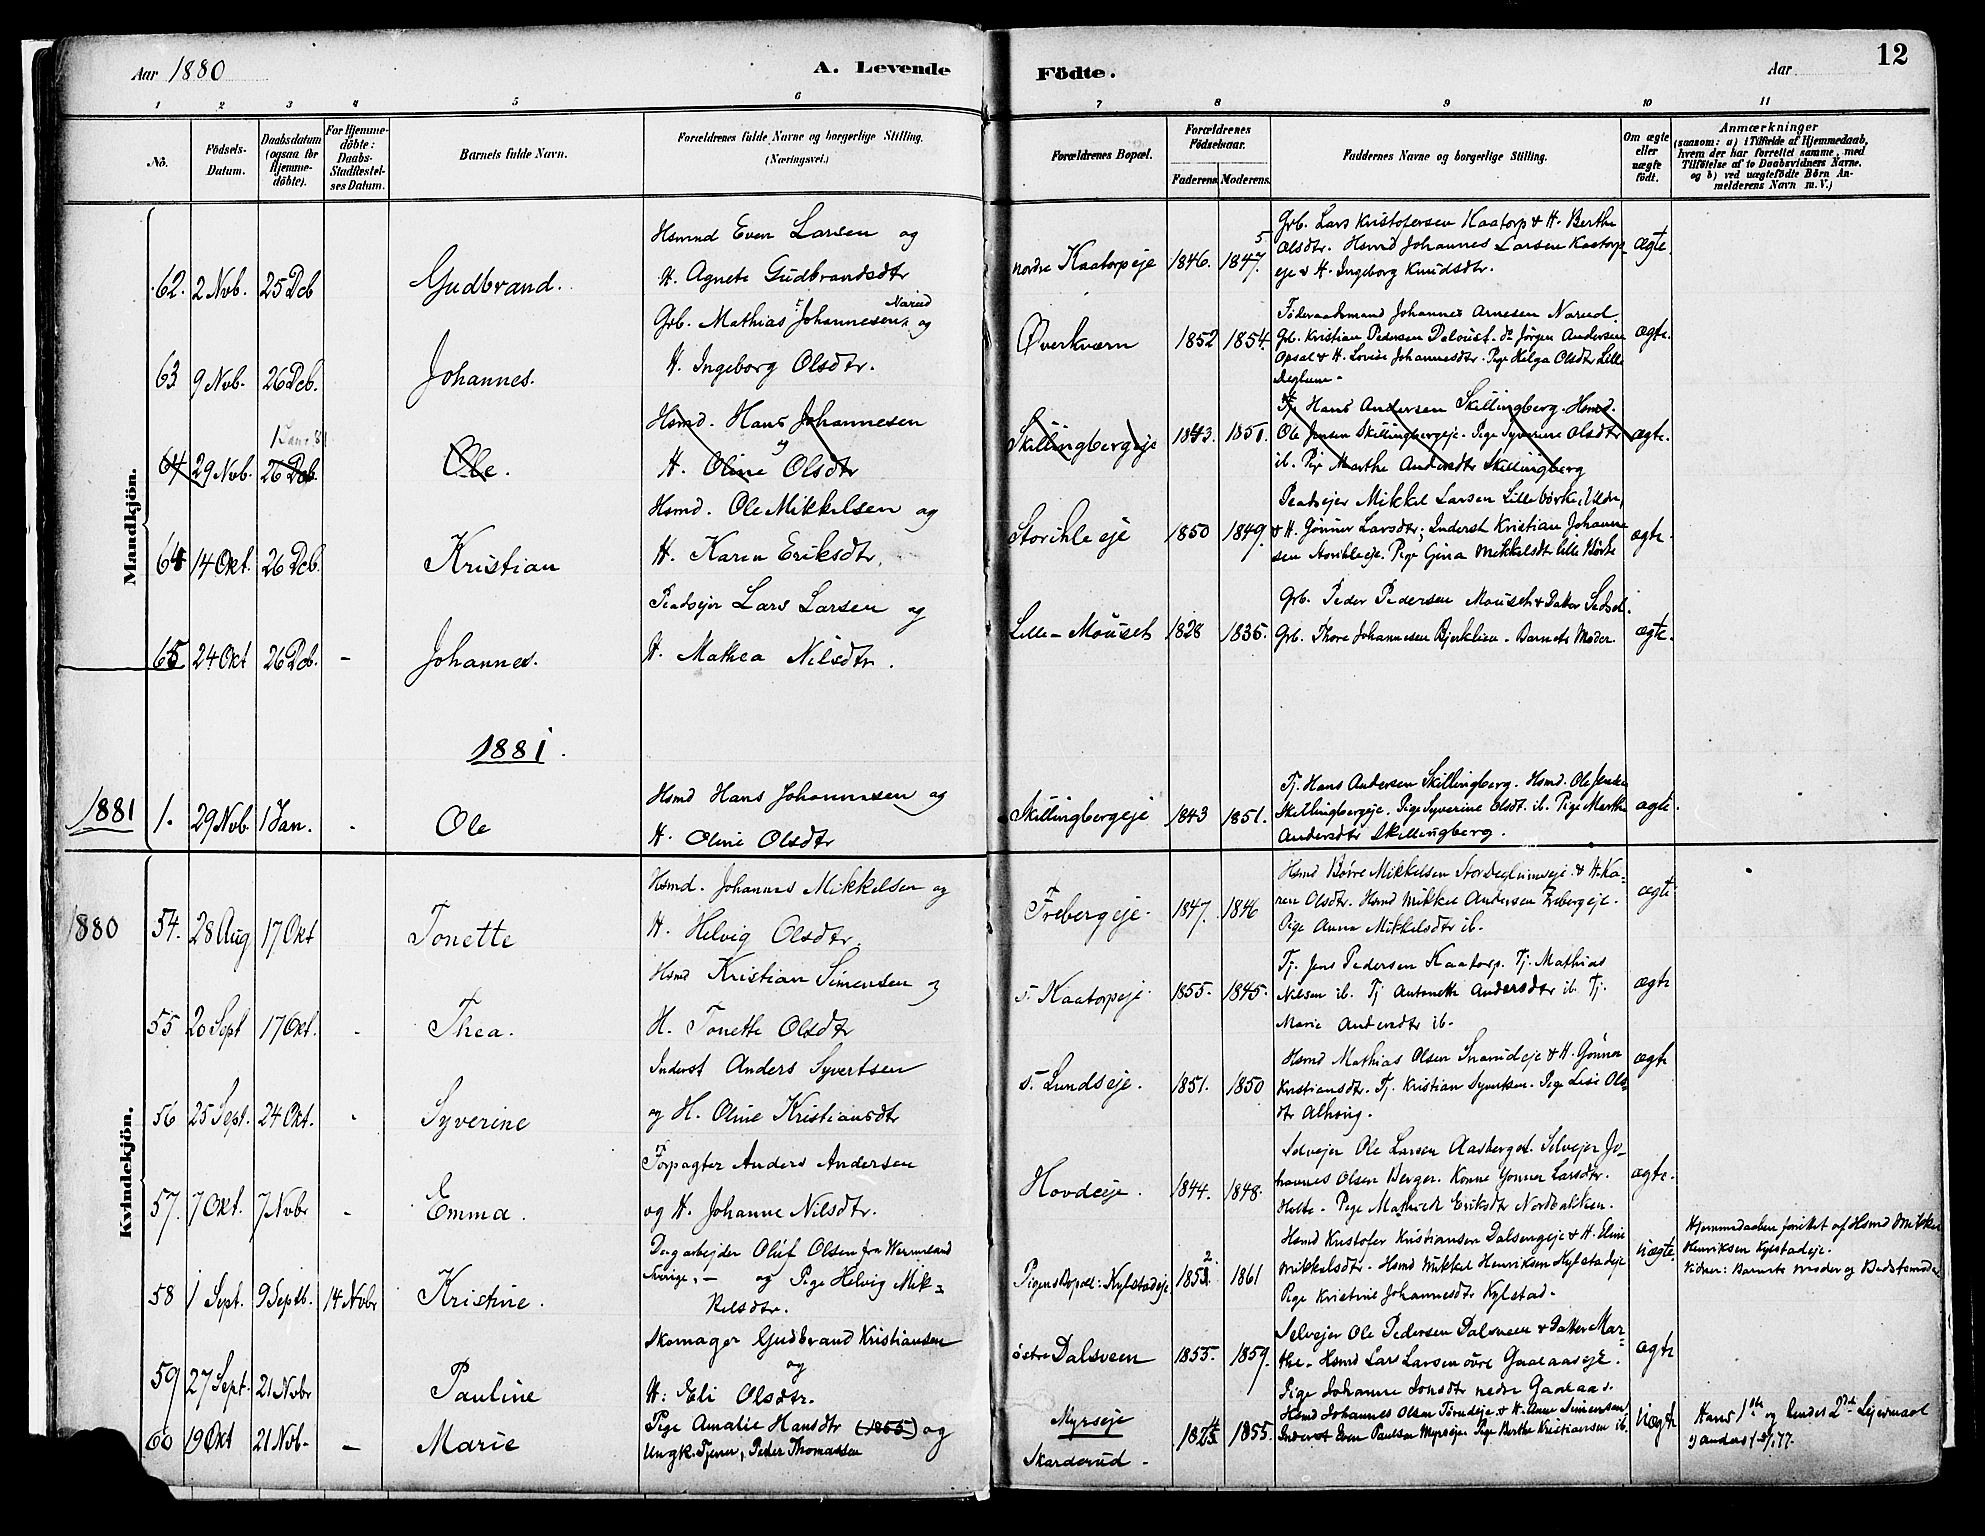 Aar 1880
A. Levende
Födte.
Aar
12
1 2 3 4 5 6 7 8 9 10 11
No.
Födsels-
Datum.
Daabsdatum
(ogsaa for
Hjemme-
döbte).
For Hjemme-
döbte:
Daabs-
Stadfæstel-
ses Datum.
Barnets fulde Navn.
Forældrenes fulde Navne og borgerlige Stilling.
(Næringsvei.)
Forældrenes Bopæl.
Forældrenes
Födselsaar.
Faderens. Moderens.
Faddernes Navne og borgerlige Stilling.
Om ægte
eller
uægte
födt.
Anmærkninger
(saasom: a) i Tilfælde af Hjemmedaab,
hvem der har forrettet samme, med
Tilföielse af to Daabsvidners Navne.
og b) ved uægtefödte Börn An-
melderens Navn m. V.)
Mandkjön.
62. 2 Nvb. 25 Dcb Gudbrand.
Hsmnd Even Larsen og
H. Agnete Gudbrandsdtr
nordre Kaatorpeje 1846. 1847. 5
Grb. Lars Kristofersen Kaatorp & H. Berthe
Olsdtr. Hsmd Johannes Larsen Kaatorp-
eje & H. Ingeborg Knudsdtr.
ægte
63 9 Nvb. 26 Dcb. Johannes.
Grb. Mathias Johannesen Narud og
H. Ingeborg Olsdtr.
Øverkværn 1852 1854.
Föderaadsmand Johannes Arnesen Narud.
Grb. Kristian Pedersen Do Jörgen Andersen
Opsal & H. Lovise Johannesdtr. Pige Helga Olsdtr Lille
Deglum.
ægte.
64 29 Nvb. 26 Dcb. 1 Jan. 81 Ole.
Hsmd. Hans Johannesen
og
H. Oline Olsdtr
Skillingbergeje 1843. 1851.
Tj. Hans Andersen Skillingberg. Hsmd.
Ole Jensen Skillingbergeje. Pige Syverine Olsdtr
ib. Pige Marthe Andersdtr Skillingberg
ægte.
64 14 Okt. 26 Dcb. Kristian
Hsmd. Ole Mikkelsen og
H. Karen Eriksdtr.
Storihle eje 1850 1849.
Pladsejer Mikkel Larsen Lillebörke,
& H. Gönner Larsdtr; Inderst Kristian Johanne-
sen Storihleeje. Pige Gina Mikkelsdt Lille Börke
ægte.
65 24 Okt 26 Dcb. - Johannes.
Pladsejer Lars Larsen og
H. Mathea Nilsdtr.
Lille-Mouset 1828 1835.
Grb. Peder Pedersen Mouset & Datter
Grb. Thore Johannesen Bjerklien. Barnets Moder
ægte.
1881.
1881 1. 29 Nvb 1 Jan. - Ole
Hsmd Hans Johannesen og
H. Oline Olsdtr
Skillingbergeje 1843 1851.
Tj. Hans Andersen Skillingberg. Hsmd. Ole Jensen
Skillingbergeje. Pige Syverine Olsdt. ib. Pige Marthe
Andersdtr Skillingberg.
ægte.
Kvindekjön.
1880 54. 28 Aug 17 Okt Tonette
Hsmd. Johannes Mikkelsen og
H. Helvig Olsdtr.
Frebergeje. 1847. 1846
Hsmd Börre Mikkelsen Stordeglumseje. & H. Ka-
ren Olsdtr. Hsmd Mikkel Andersen Frebergeje.
Pige Anna Mikkelsdtr ib.
ægte
55 20 Sept 17 Okt. - Thea.
Hsmd Kristian Simensen og
H. Tonette Olsdtr
s. Kaatorpeje. 1855. 1845.
Tj. Jens Pedersen Kaatorp. Tj. Mathias
Nilsen ib. Tj Antonette Andersdtr ib. Tj.
Marie Andersdtr ib.
ægte
56 25 Sept. 24 Okt. - Syverine
Inderst Anders Syvertsen
og H. Oline Kristiansdtr
s. Lundseje. 1851. 1850
Hsmd Mathias Olsen Snarudeje & H. Gönner
Kristiansdtr. Tj. Kristian Syvertsen. Pige Lise Ols-
dtr Alhaug.
ægte
57. 7 Okt. 7 Nvbr - Emma.
Forpagter Anders Andersen
og H. Johanne Nilsdtr.
Hovdeeje. 1844. 1848.
Selvejer Ole Larsen Aasberget. Selvejer Jo-
hannes Olsen Berger. Konne Gönner Larsdtr.
Holte. Pige Mathea Eriksdtr Nordbakken.
ægte.
58 1 Sept. 9 Septb. 14 Nvbr Kristine.
Dagarbejder Oluf Olsen fra Wermeland
Sverige, - og Pige Helvig Mik-
kelsdtr.
Pigens Bopæl: Kylstadeje 1851 2 1861
Hsmd Kristofer Kristiansen Dalsengeje & H. Eline
Mikkelsdtr. Hsmd Mikkel Henriksen Kylstadeje
Pige Kristine Johannesdtr Kylstad.
uægte
Hjemmedaaben forrettet af Hsmd Mikkel
Henriksen Kylstadeje.
Vidner: Barnets Moder og Bedstemoder
59 27 Sept. 21 Nvbr Pauline
Skomager Gudbrand Kristiansen
og
H: Eli Olsdtr.
östre Dalsveen 1855. 1859.
Selvejer Ole Pedersen Dalsveen & Datter Mar-
the. Hsmd Lars Larsen övre Gaalaaseje.
Pige Johanne Jonsdtr nedre Gaalaas.
ægte
60 19 Okt 21 Nvb. - Marie
Pige Amalie Hansdtr (1855) og
Ungk. Tjener, Peder Thomassen
Myrseje
Skarderud - 1855.
Hsmd Johannes Olsen Torudeje & H. Anne Simensen
Inderst Even Paulsen Myrseje Pige Berthe Kristiansen ib.
uægte
Hans 1ste og hendes 2det Lejermaal